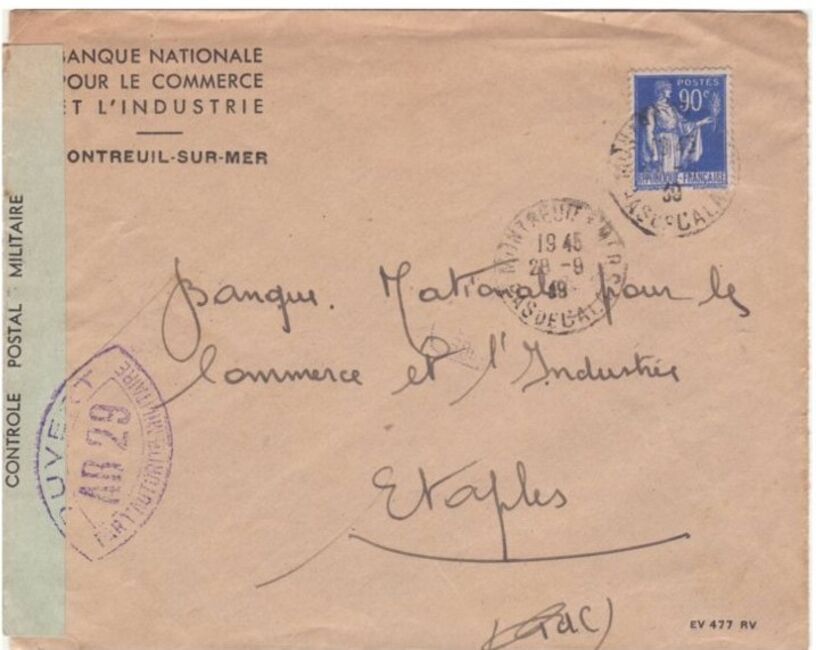 BANQUE NATIONALE
POUR LE COMMERCE
ET L'INDUSTRIE
MONTREUIL-SUR-MER
POSTES
90c
REPUBLIQUE-FRANÇAISE
39
PAS DE CALAIS
MONTREUIL S MER
19 45
28 -9
39
PAS DE CALAIS
CONTROLE POSTAL MILITAIRE
OUVERT
AB 29
PAR L'AUTORITE MILITAIRE
Banque Nationale pour le
Commerce et l'Industrie
Etaples
(PdC)
EV 477 RV